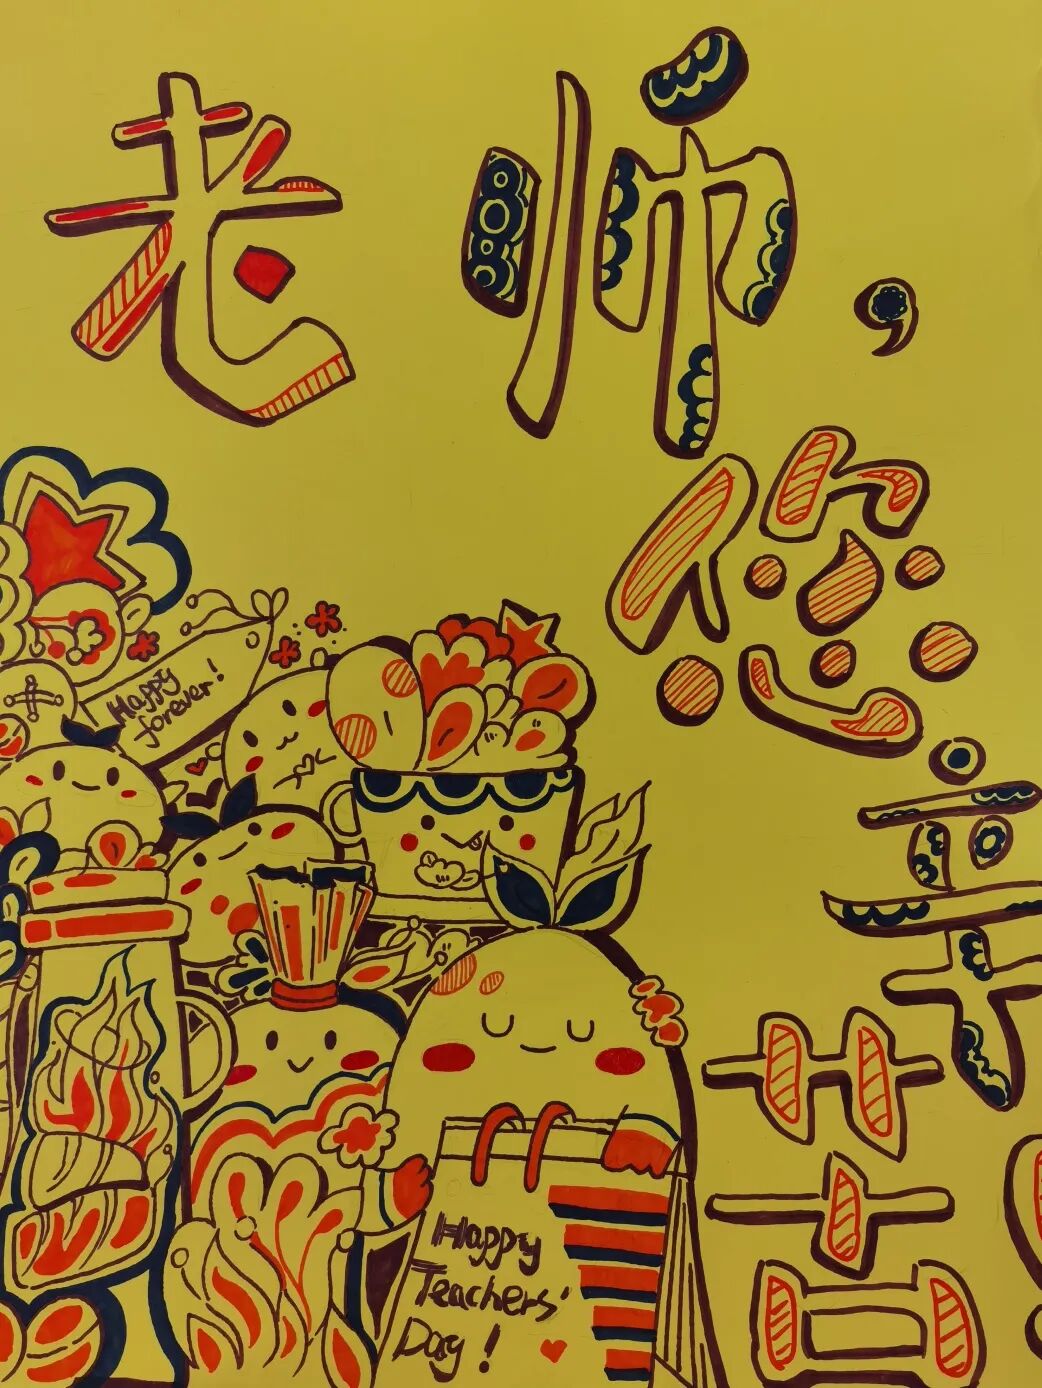 老师,
您
辛
苦
Happy
forever!
Happy
Teachers'
Day!